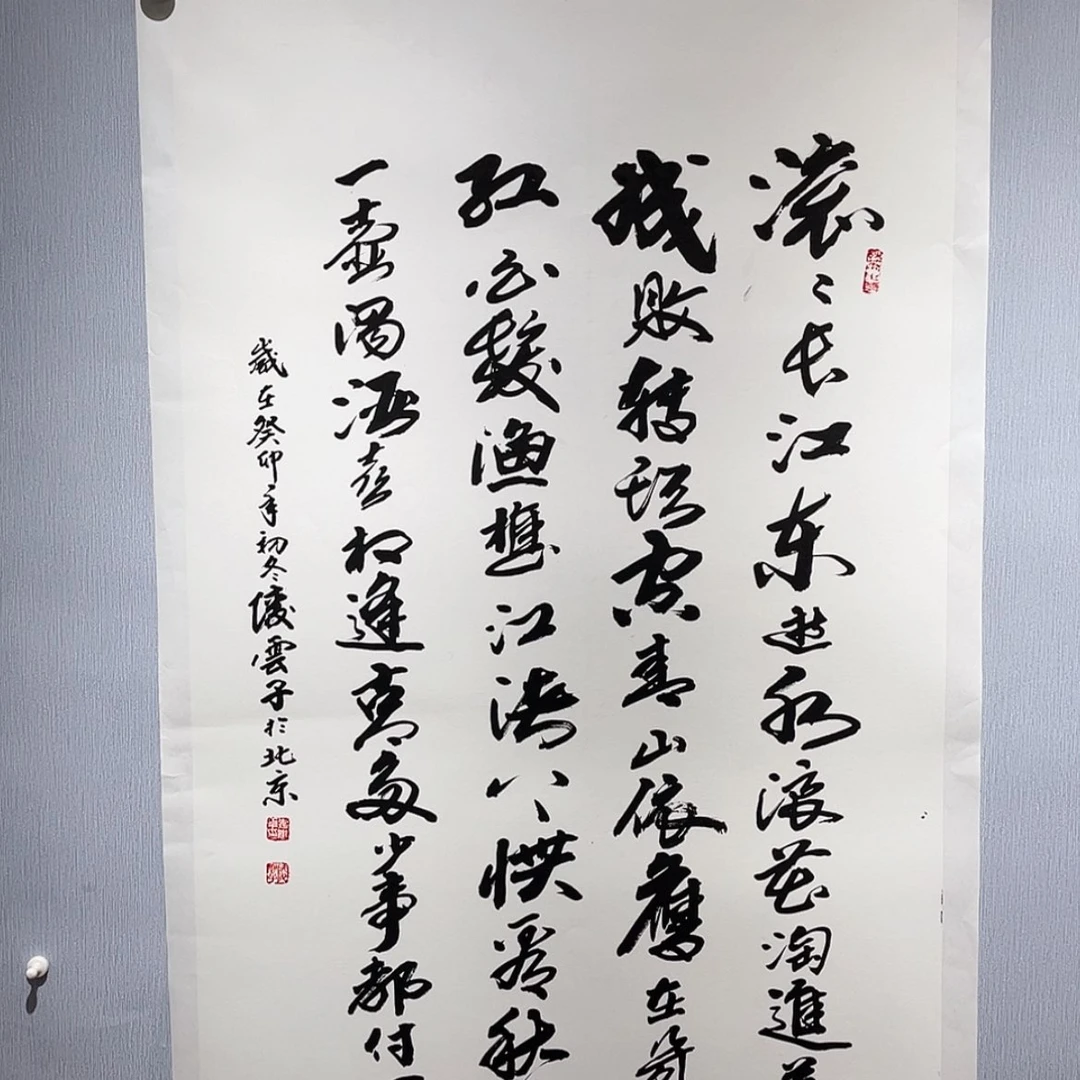 滚〻长江东逝水浪花淘進
成败转頭空青山依舊在幾
红白髮漁樵江渚上惯看秋
一壺濁酒喜相逢古今多少事都付
歲在癸卯年初冬凌雲子於北京